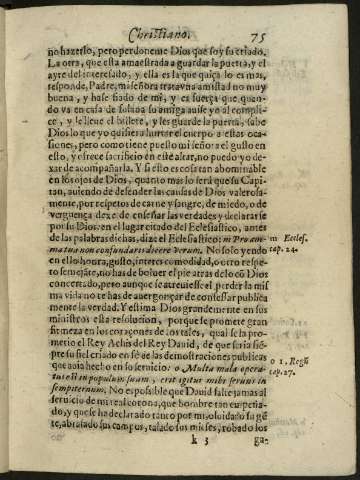 Christiano. 75
no hazerlo, pero perdoneme Dios que soy su criado.
La otra, que esta amaestrada a guardar la puerta, y el
ayre del interesado, y ella es la que quiça lo es mas,
responde, Padre, mi señora trata vna amistad no muy
buena, y hase fiado de mi, y es fuerça que quan-
do va en casa de fulana su amiga auise yo al compli-
ce, y le lleue el billete, y les guarde la puerta, sabe
Dios lo que yo quisiera hurtar el cuerpo a estas oca-
siones, pero como tiene puesto mi señora el gusto en
esto, y ofrece sacrificio en este altar, no puedo yo de-
xar de acompañarla. Y si esto es cosa tan abominable
en los ojos de Dios, quanto mas lo será que su Capi-
tan, auiendo de defender las causas de Dios valerosa-
mente, por respetos de carne y sangre, de miedo, o de
verguença dexe de enseñar las verdades y declararse
por su Dios: en el lugar citado del Eclesiastico, antes
de las palabras dichas, dize el Eclesiastico: m Pro ani-
ma tua non confundaris dicere verum. No solo yendo
en ello honra, gusto, interes comodidad, o otro respe-
to semejáte, no has de boluer el pie atras de lo cõ Dios
concertado, pero aunque se atreuiesse el perder la mis
ma vida no te has de auergonçar de confessar publica
mente la verdad. Y estima Dios grandemente en sus
ministros esta resolucion, porque se promete gran
firmeza en los coraçones de los tales, qual se la pro-
metio el Rey Achis del Rey Dauid, de que seria siẽ-
pre su fiel criado en fè de las demostraciones publicas
que auia hecho en su seruicio: o Multa mala opera-
tus est in populum suum, erit igitur mihi seruus in
sempiternum. No es posible que Dauid falte jamas al
seruicio de mi real corona, que hombre tan empeña-
do, y que se ha declarado tanto por mi, oluidado su gẽ
te, abrasado sus campos, talado sus mises, robado los
k 3 ga-
m Eccles.
cap. 24.
o 1. Regũ
cap. 27.